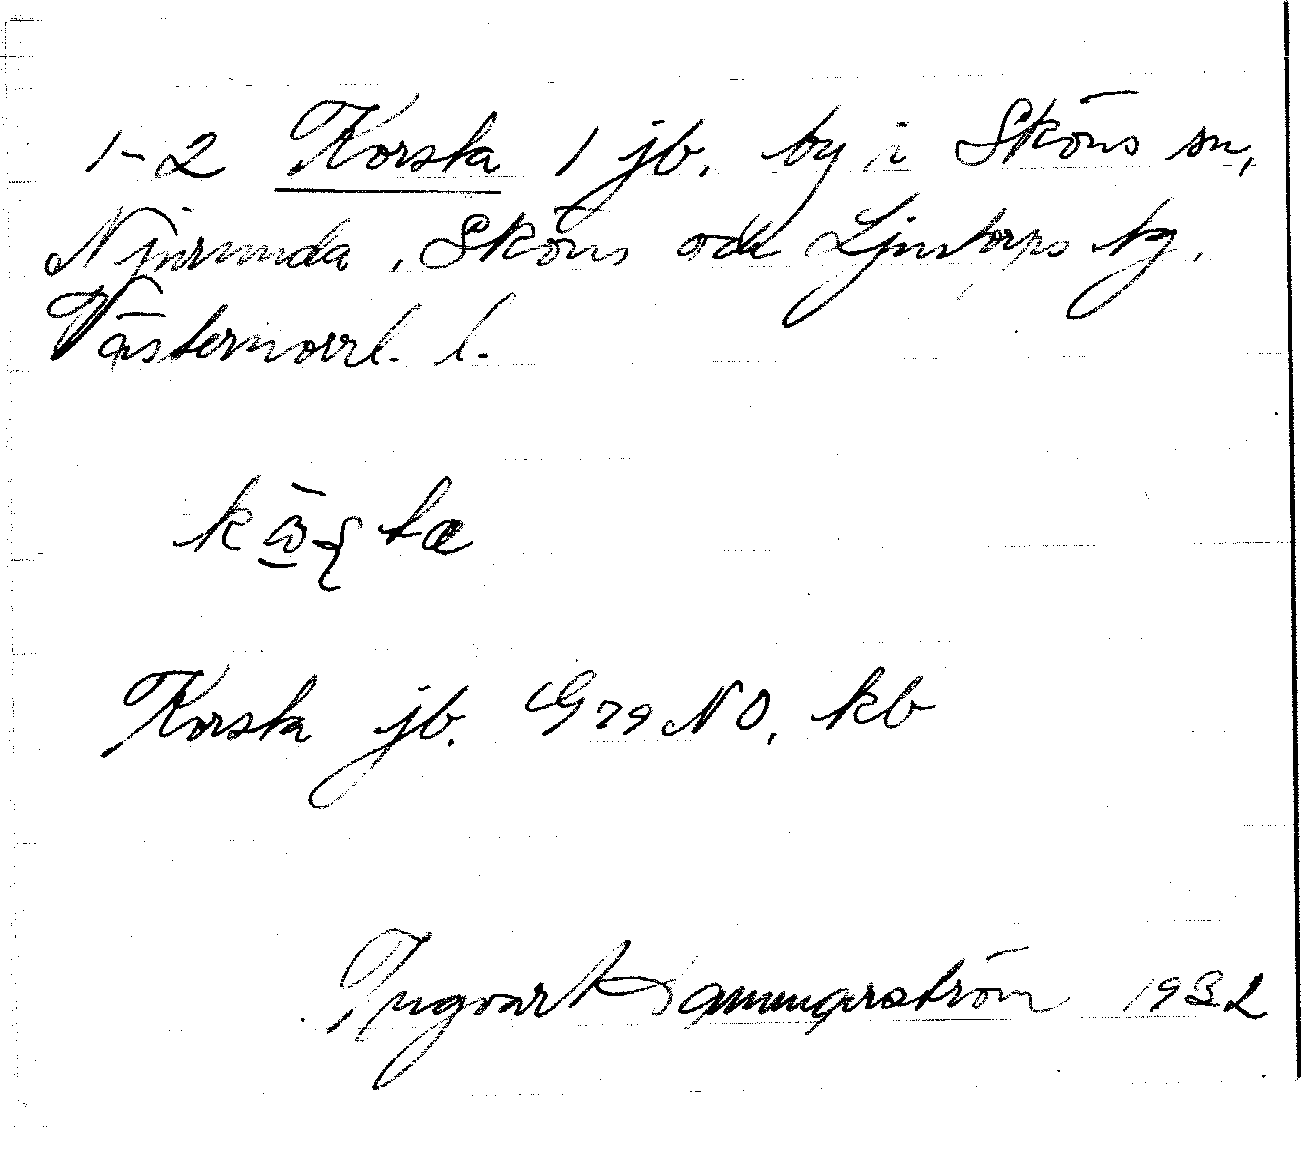 1-2 Korsta 1 jb. by i Sköns sn,
Njurunda, Sköns och Ljustorps tg.
Västernorrl. l.
Korsta jb. G79 NO, kb
Ingvar Hammarström 1932